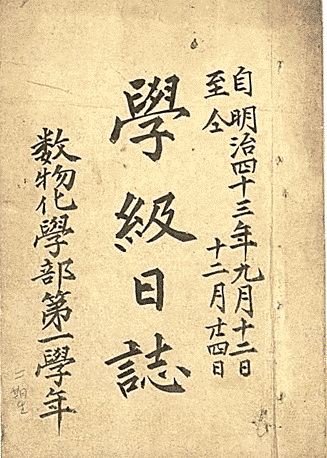 自明治四十三年九月十二日
至仝十二月廿四日
學級日誌
数物化學部第一學年
三期生